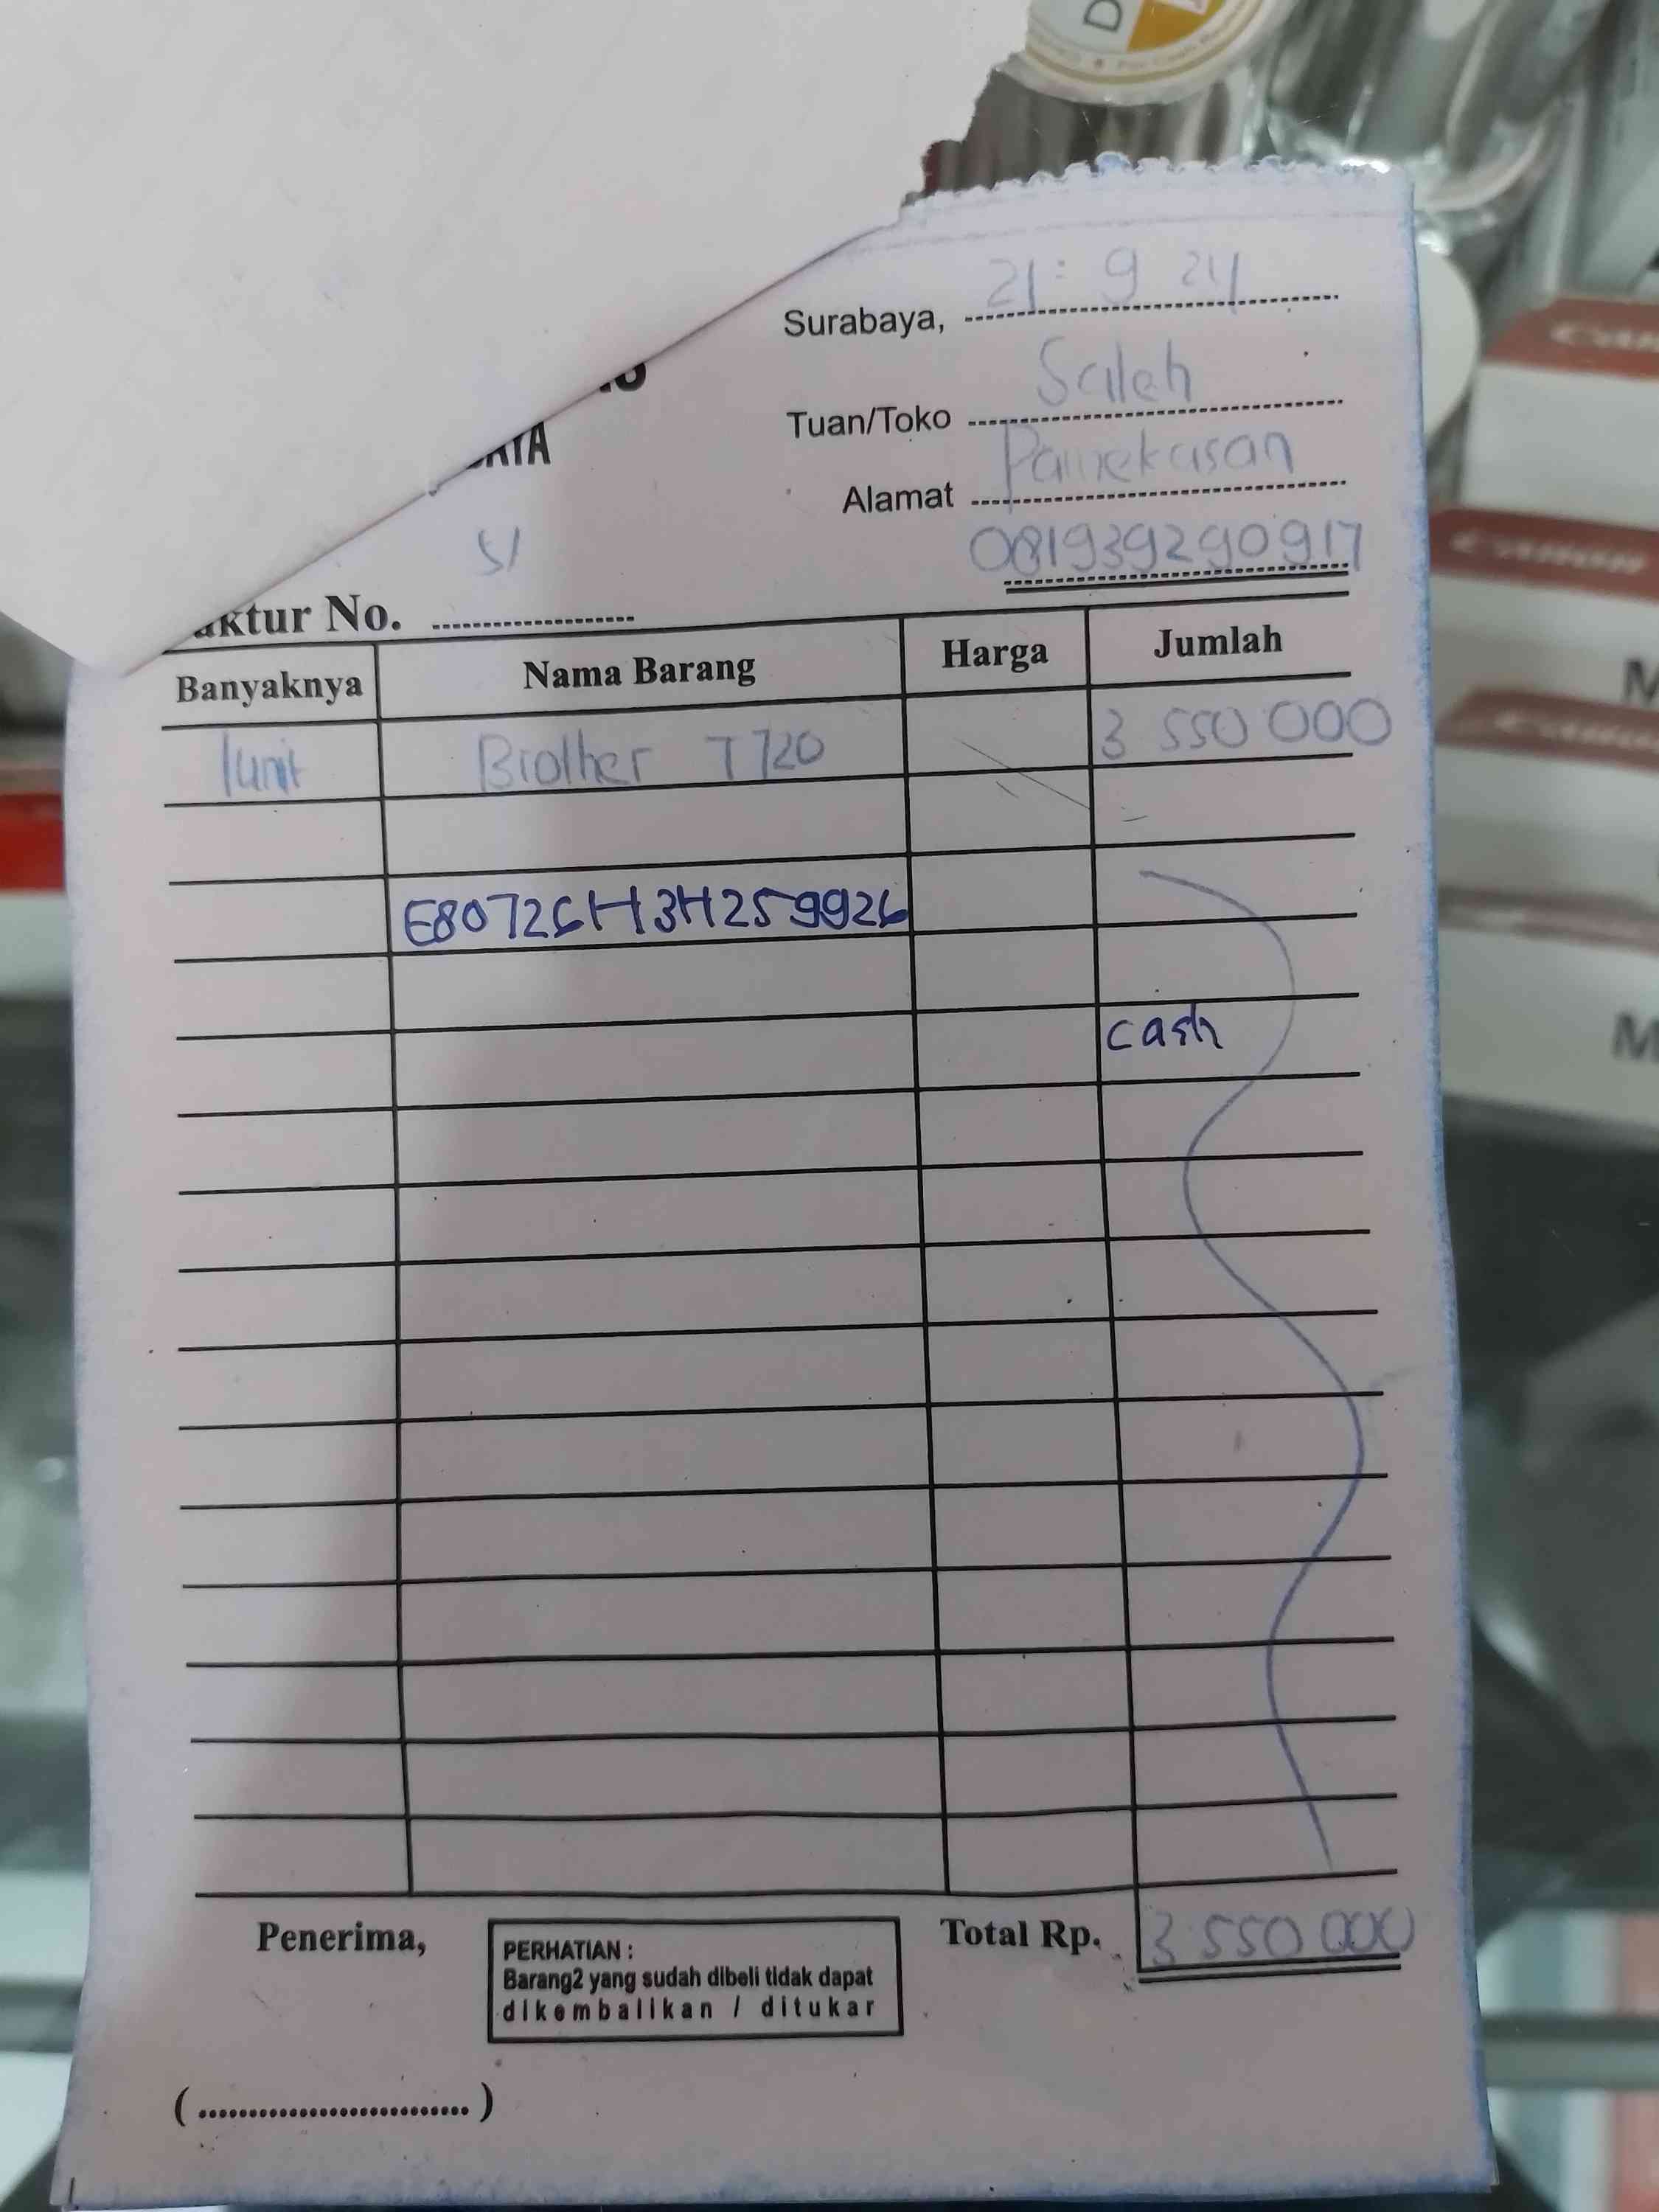 Surabaya, 21 : 9 24
Tuan/Toko Saleh
Alamat Pamekasan
081939290917
S/
ktur No.
Banyaknya Nama Barang Harga Jumlah
1 unit Brother T720 3 550 000
E80726H3H259926
cash
Penerima,
Total Rp. 3 550 000
PERHATIAN :
Barang2 yang sudah dibeli tidak dapat
dikembalikan / ditukar
(...........................)
Canon